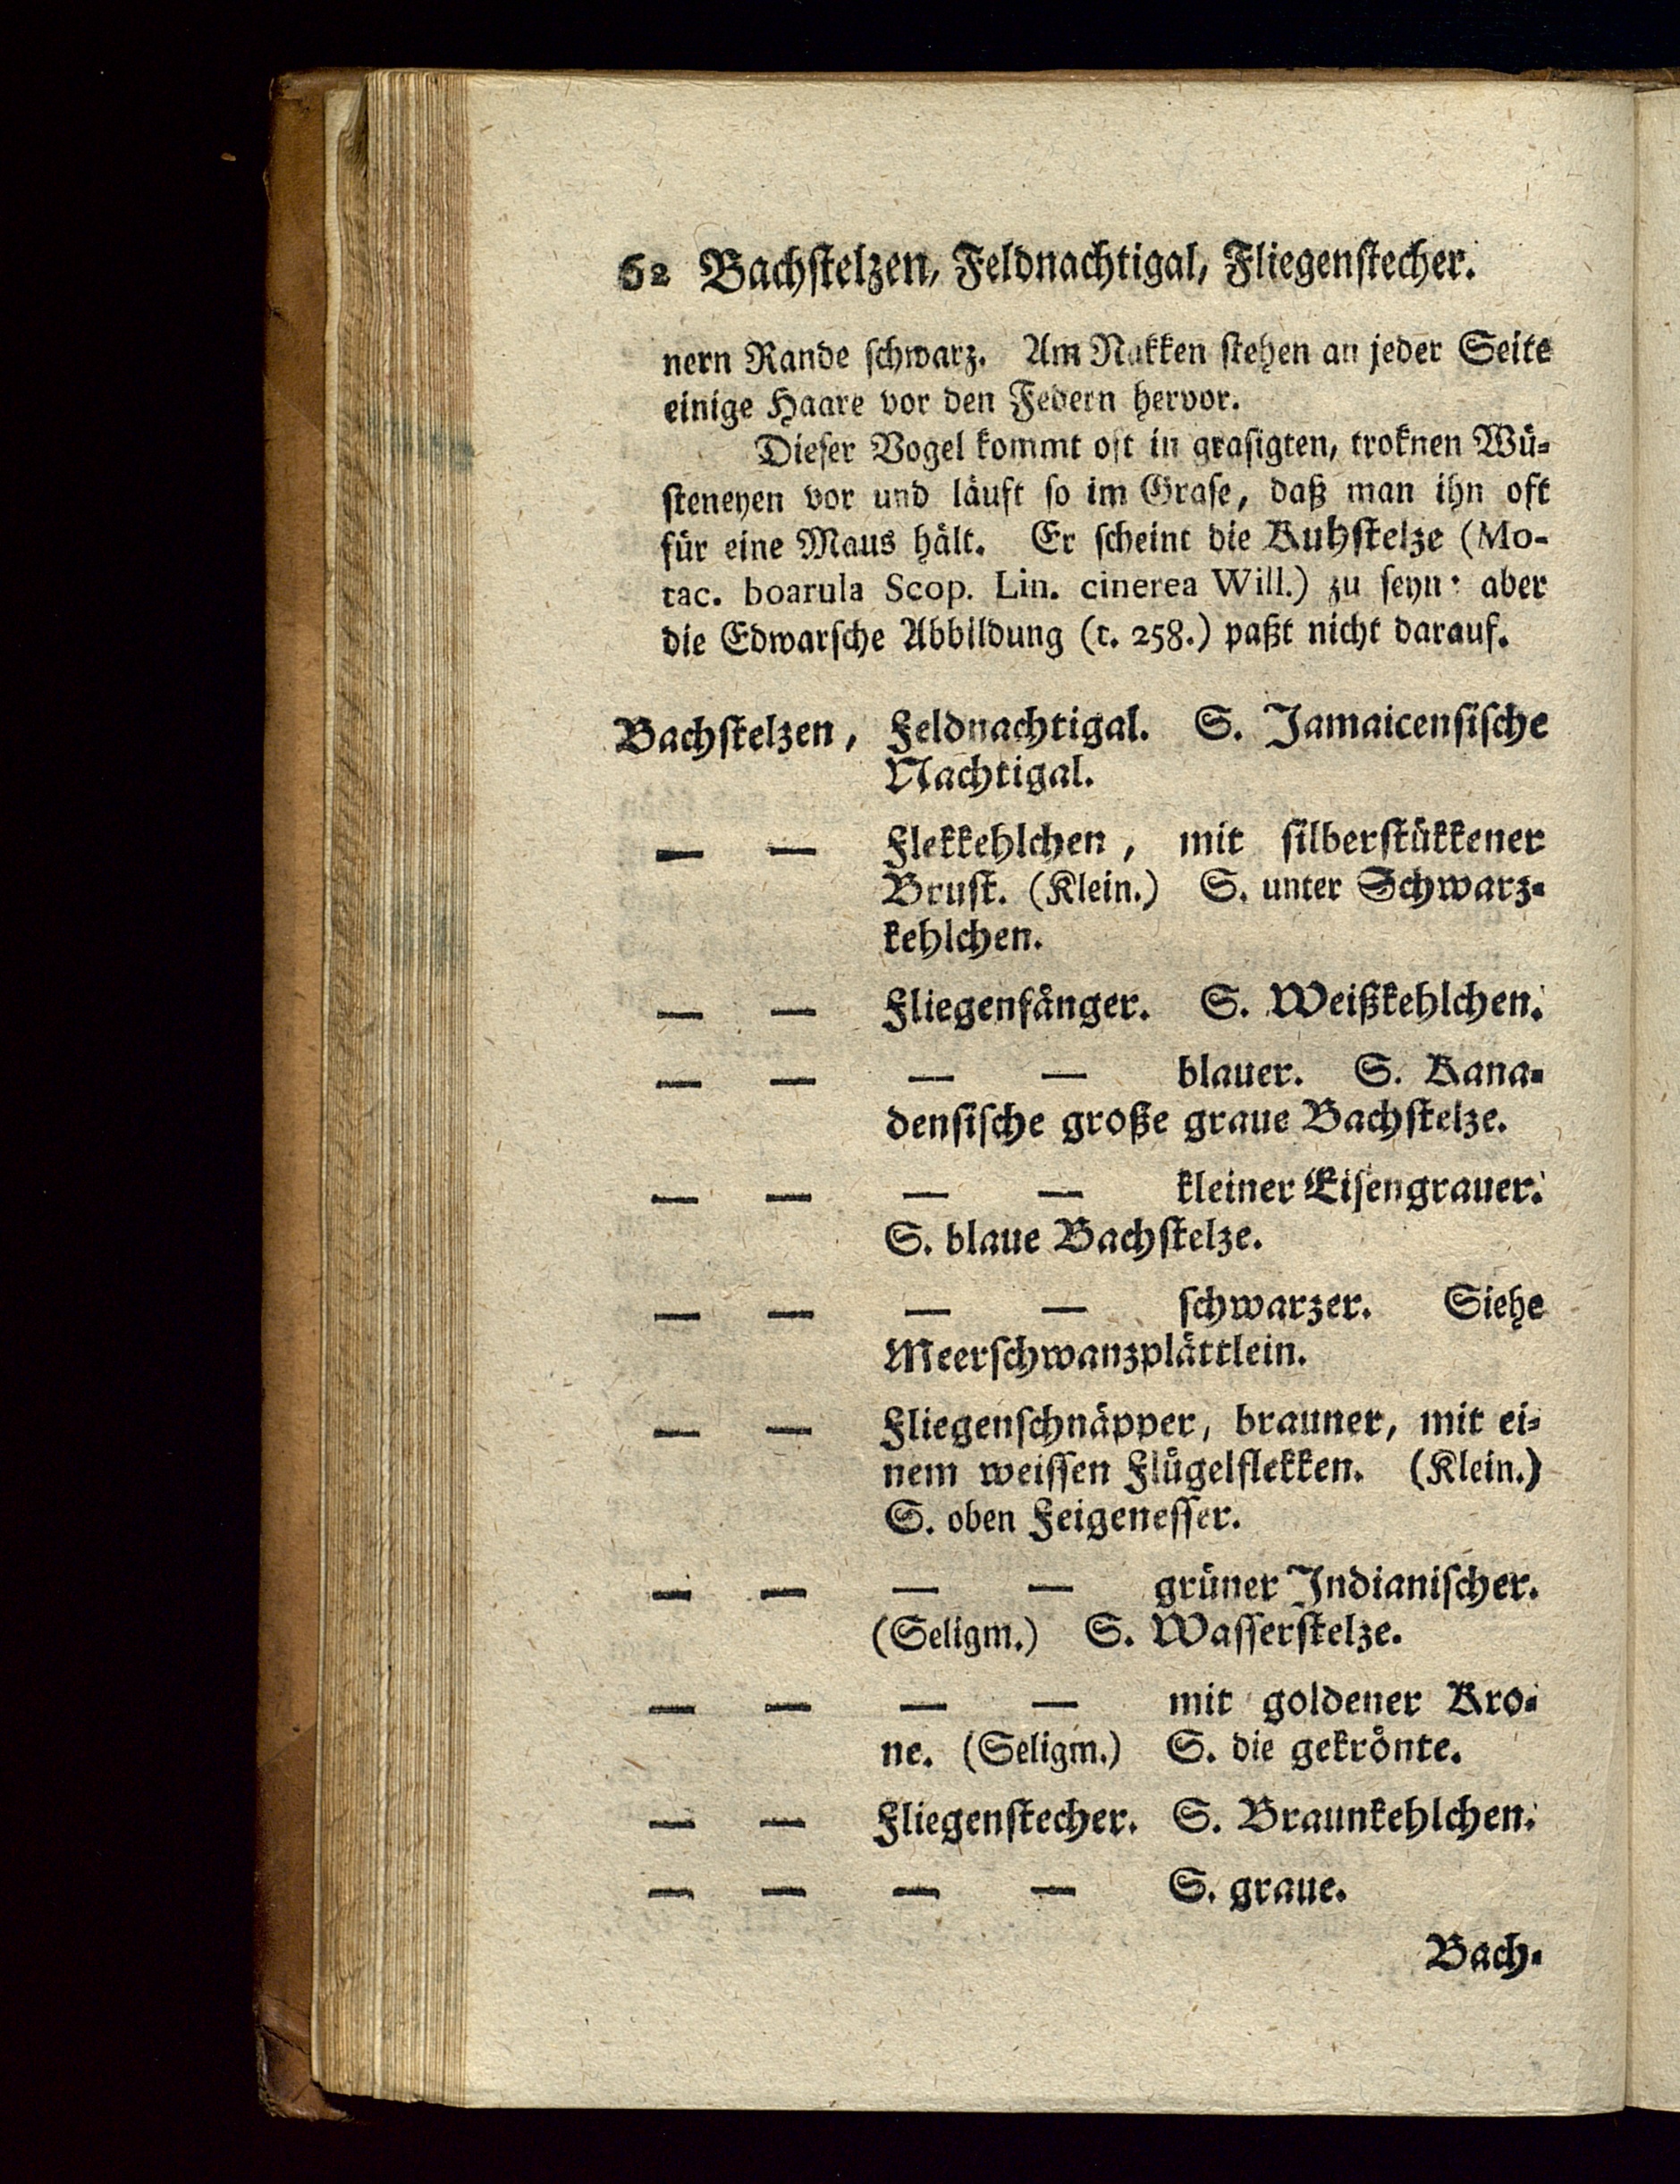 62 Bachſtelzen, Feldnachtigal, Fliegenſtecher.
nern Rande ſchwarz. Am Nakken ſtehen an jeder Seite
einige Haare vor den Federn hervor.
Dieſer Vogel kommt oft in graſigten, troknen Wü⸗
ſteneyen vor und läuft ſo im Graſe, daß man ihn oft
für eine Maus hält. Er ſcheint die Kuhſtelze (Mo-
tac. boarula Scop. Lin. cinerea Will.) zu ſeyn: aber
die Edwarſche Abbildung (t. 258.) paßt nicht darauf.
Bachſtelzen, Feldnachtigal. S. Jamaicenſiſche
Nachtigal.
— — Flekkehlchen, mit ſilberſtükkener
Bruſt. (Klein.) S. unter Schwarz⸗
kehlchen.
— — Fliegenfånger. S. Weißkehlchen.
— — — — blauer. S. Kana⸗
denſiſche große graue Bachſtelze.
— — — — kleiner Eiſengrauer.
S. blaue Bachſtelze.
— — — — ſchwarzer. Siehe
Meerſchwanzplättlein.
— — Fliegenſchnäpper, brauner, mit ei⸗
nem weiſſen Flügelflekken. (Klein.)
S. oben Feigeneſſer.
— — — — grüner Indianiſcher.
(Seligm.) S. Waſſerſtelze.
— — — — mit goldener Kro⸗
ne. (Seligm.) S. die gekrönte.
— — Fliegenſtecher. S. Braunkehlchen.
— — — — S. graue.
Bach⸗